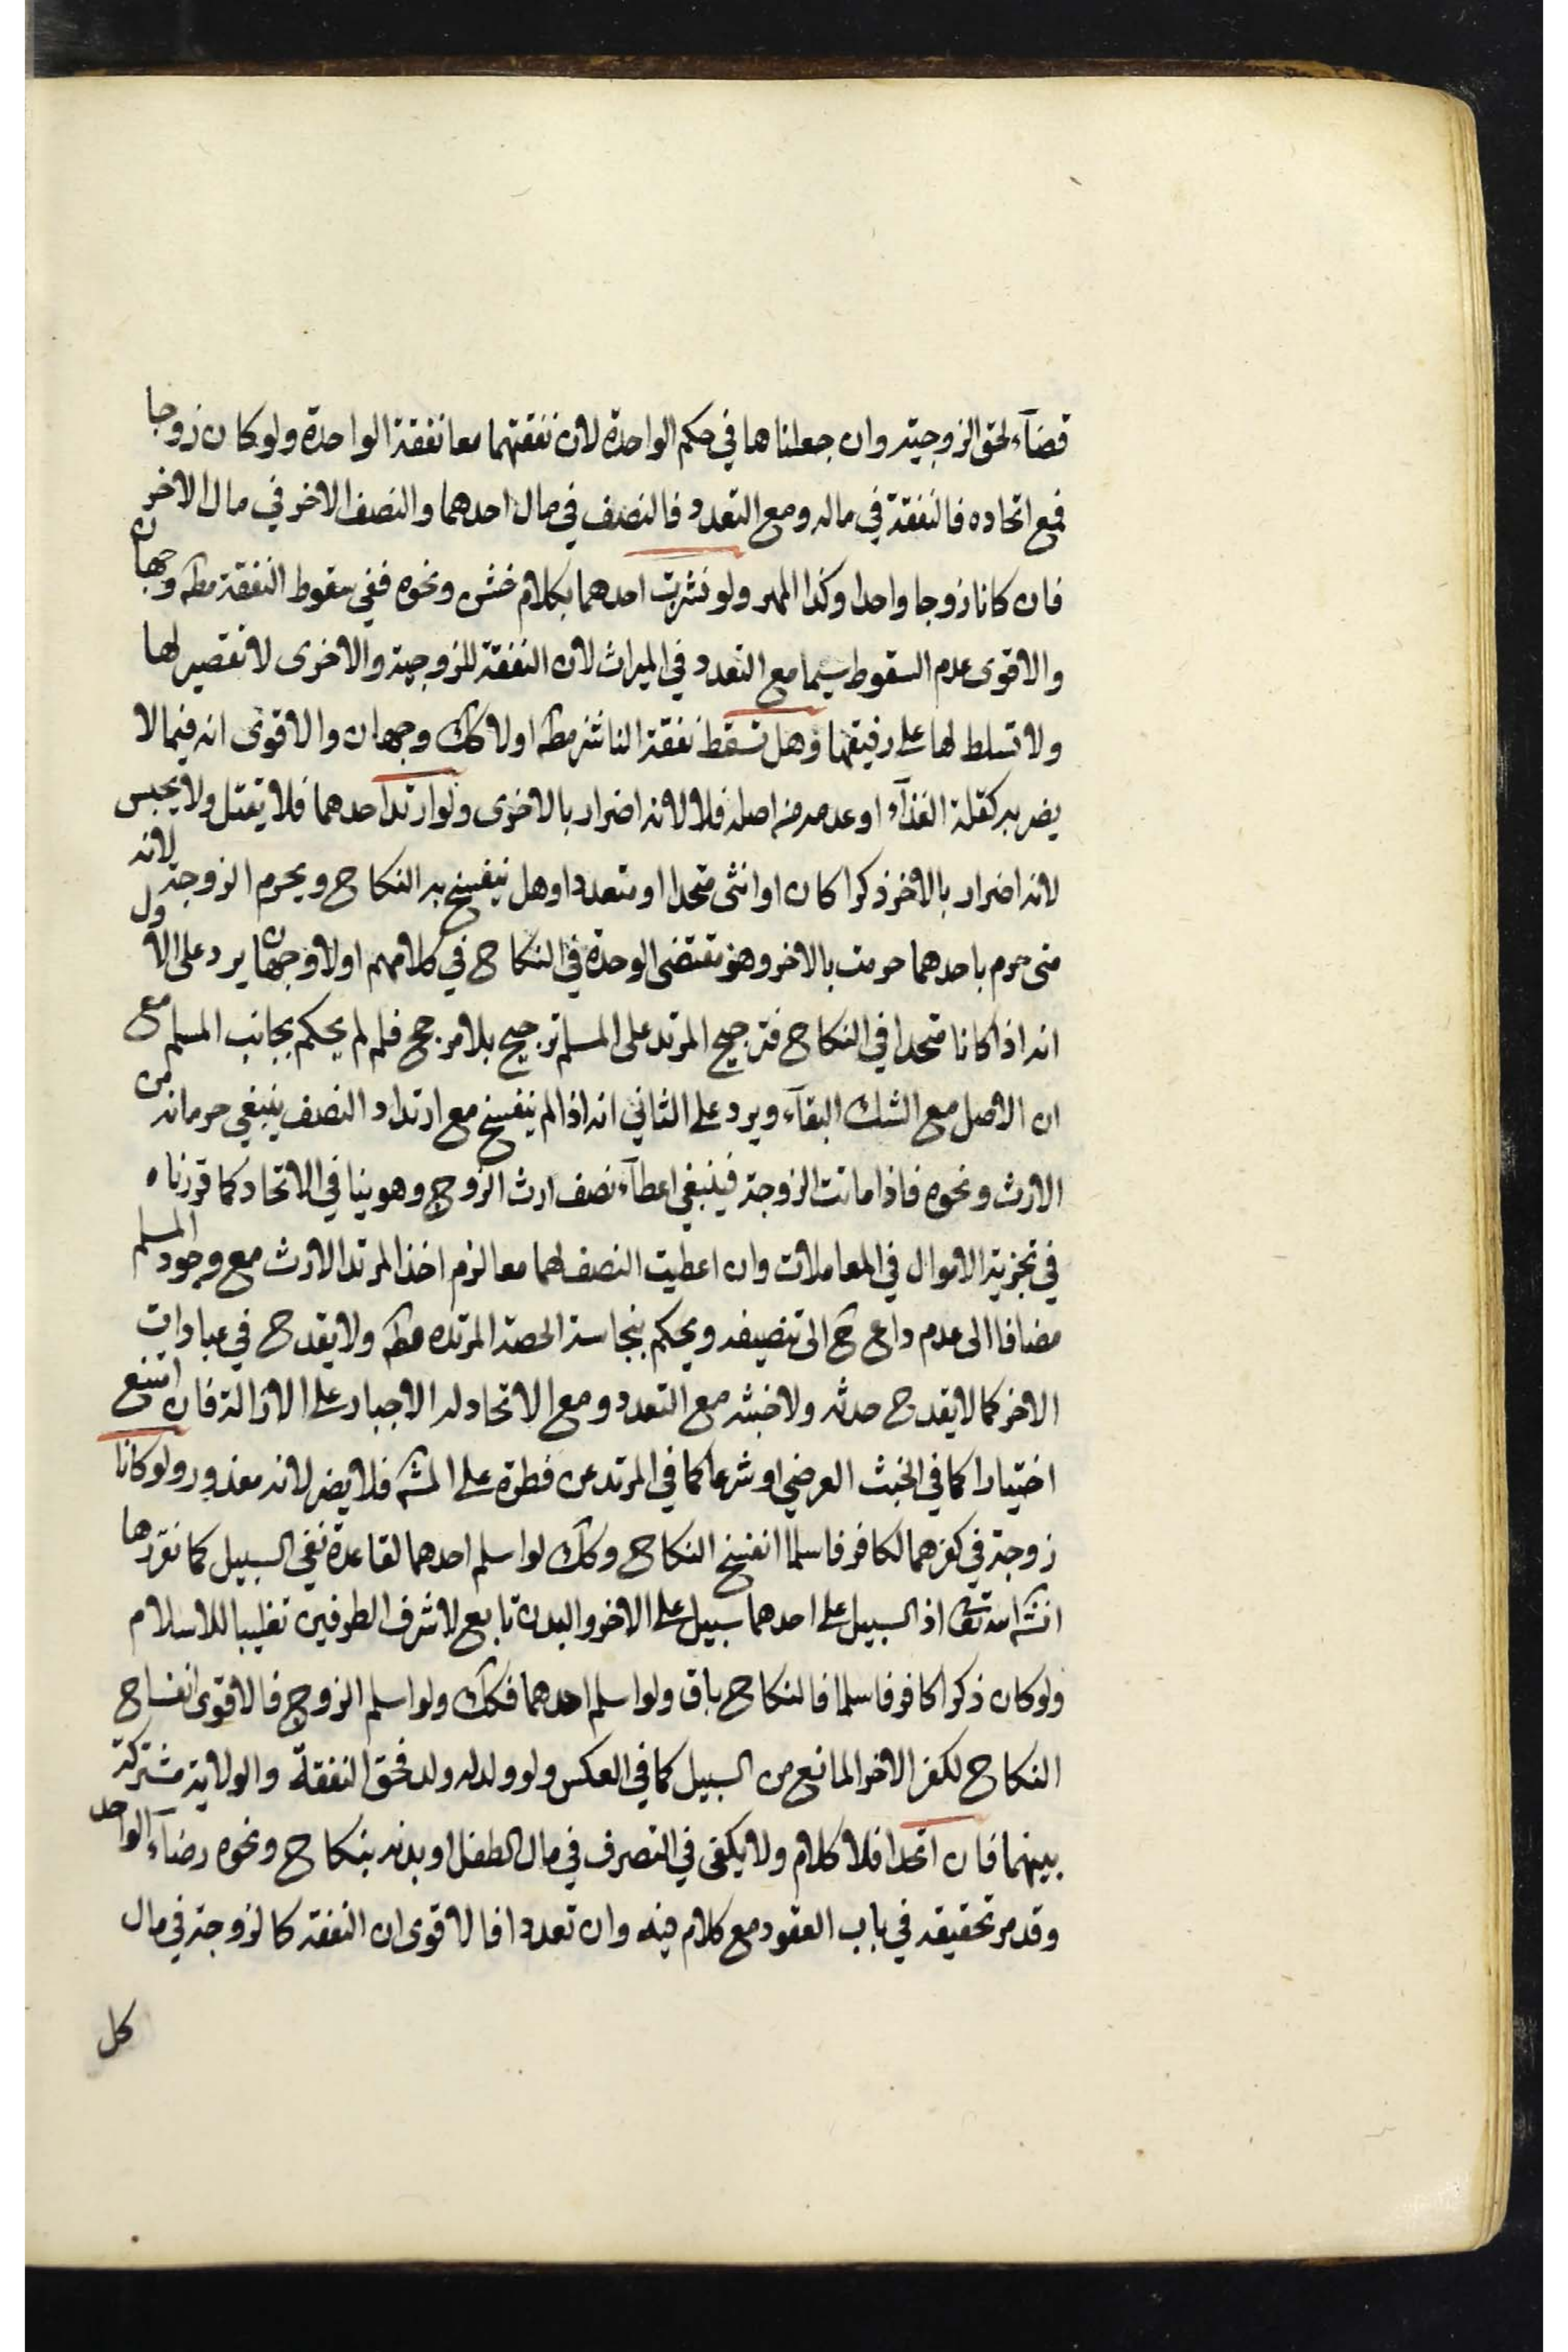 قضآء لحق الزوجية وان جعلناها في حكم الواحدة لان نفقتهما معا نفقة الواحدة ولو كان زوجا
فمع اتحاده فالنفقة في ماله ومع التعدد فالنصف في مال احدهما والنصف الاخر في مال الاخر
فان كانا زوجا واحدا وكذا المهر ولو نشزت احدهما بكلام خشن ونحوه ففي سقوط النفقة مطه وجهان
والاقوى عدم السقوط سيما مع التعدد في الميراث لان النفقة للزوجية والاخرى لا تقصير لها
ولا تسلط لها على رفيقها وهل تسقط نفقة الناشز مطه اولا كك وجهان والاقوى انه فيما لا
يضر به كقلة الغذآء او عدمه من اصله فلا لانه اضرار بالاخرى ولو ارتد احدهما فلا يقتل ولا يحبس
لانه اضرار بالاخر ذكرا كان او انثى متحدا او متعددا وهل ينفسخ به النكاح ويحرم الزوجة لانه
متى حرم باحدهما حرمت بالاخر وهو مقتضى الوحدة في النكاح في كلامهم اولا وجهان يرد على الاول
انه اذا كانا متحدا في النكاح فترجيح المرتد على المسلم ترجيح بلا مرجح فلم لم يحكم بجانب المسلم مع
ان الاصل مع الشك البقآء ويرد على الثاني انه اذا لم ينفسخ مع ارتداد النصف ينبغي حرمانه من
الارث ونحوه فاذا ماتت الزوجة فينبغي اعطآء نصف ارث الزوج وهو ينافي الاتحاد كما قررناه
في تجزية الاموال في المعاملات وان اعطيت النصف لهما معا لزم اخذ المرتد الارث مع وجود المسلم
مضافا الى عدم داع ح الى تنصيفه ويحكم بنجاسة الحصة المرتده مطه ولا يقدح في عبادات
الاخر كما لا يقدح حدثه ولا خبثه مع التعدد ومع الاتحاد له الاجبار على الازالة فان امتنع
اختيارا كما في الخبث العرضي او شرعا كما في المرتد عن فطرة على المشه فلا يضر لانه معذور ولو كانا
زوجة في كفرهما لكافر فاسلما انفسخ النكاح وكك لو اسلم احدهما لقاعدة نفي السبيل كما نقررها
انشه الله تعه اذ السبيل على احدهما سبيل على الاخر والبدن تابع لاشرف الطرفين تغليبا للاسلام
ولو كان ذكرا كافر فاسلما فالنكاح باق ولو اسلم احدهما فكك ولو اسلم الزوج فالاقوى انفساح
النكاح لكفر الاخر المانع من السبيل كما في العكس ولو ولد له ولد فحق النفقة والولاية مشتركة
بينهما فان اتحدا فلا كلام ولا يكفى في التصرف في مال الطفل او بدنه بنكاح ونحوه رضآء الواحد
وقد مر تحقيقه في باب العقود مع كلام فيه وان تعددا فالاقوى ان النفقة كالزوجة في مال
كل